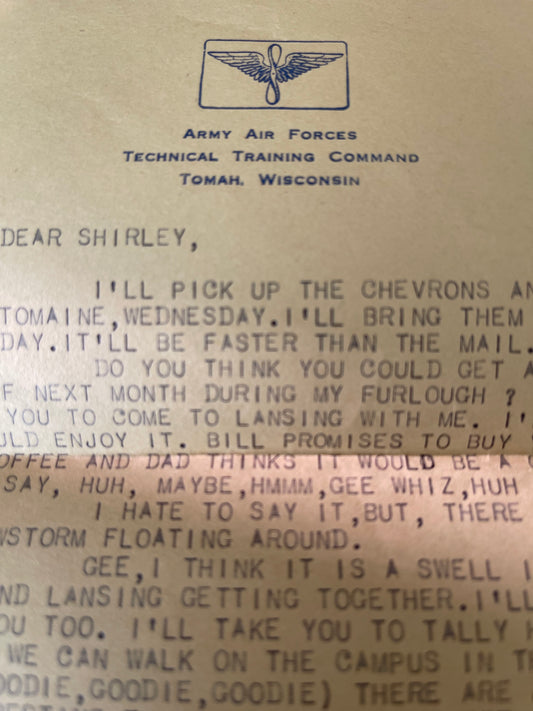 ARMY AIR FORCES
TECHNICAL TRAINING COMMAND
TOMAH, WISCONSIN
DEAR SHIRLEY,
I'LL PICK UP THE CHEVRONS AN
TOMAINE,WEDNESDAY.I'LL BRING THEM
DAY.IT'LL BE FASTER THAN THE MAIL.
DO YOU THINK YOU COULD GET A
F NEXT MONTH DURING MY FURLOUGH ?
YOU TO COME TO LANSING WITH ME. I'
ULD ENJOY IT. BILL PROMISES TO BUY
OFFEE AND DAD THINKS IT WOULD BE A
SAY, HUH, MAYBE,HMMM,GEE WHIZ,HUH
I HATE TO SAY IT,BUT, THERE
WSTORM FLOATING AROUND.
GEE,I THINK IT IS A SWELL I
ND LANSING GETTING TOGETHER.I'LL
OU TOO. I'LL TAKE YOU TO TALLY H
WE CAN WALK ON THE CAMPUS IN TH
OODIE,GOODIE,GOODIE) THERE ARE